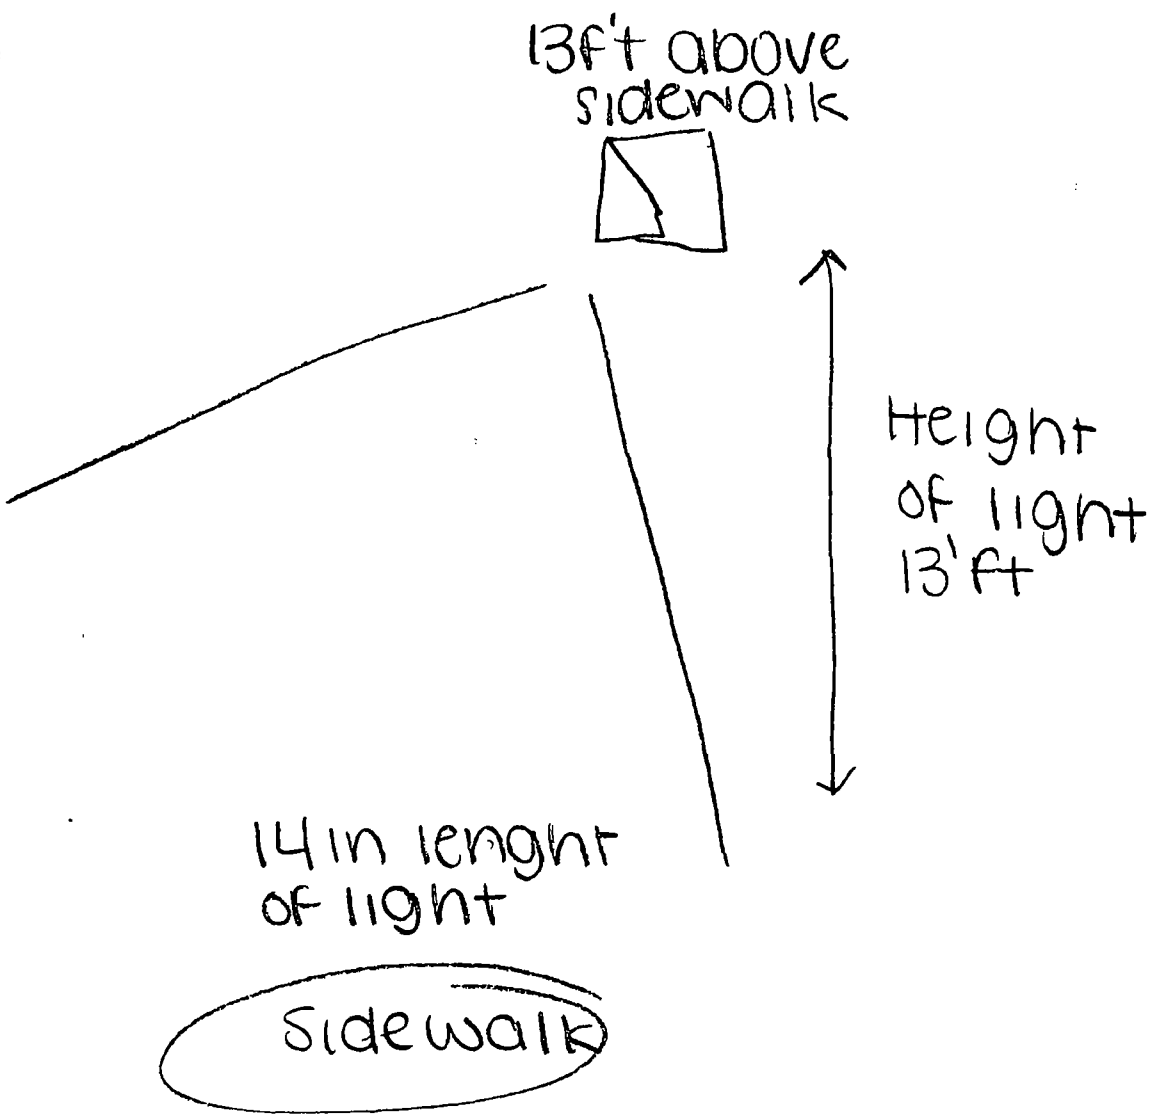 13f't above
sidewalk
Height
of light
13'ft
14in lenght
of light
Sidewalk